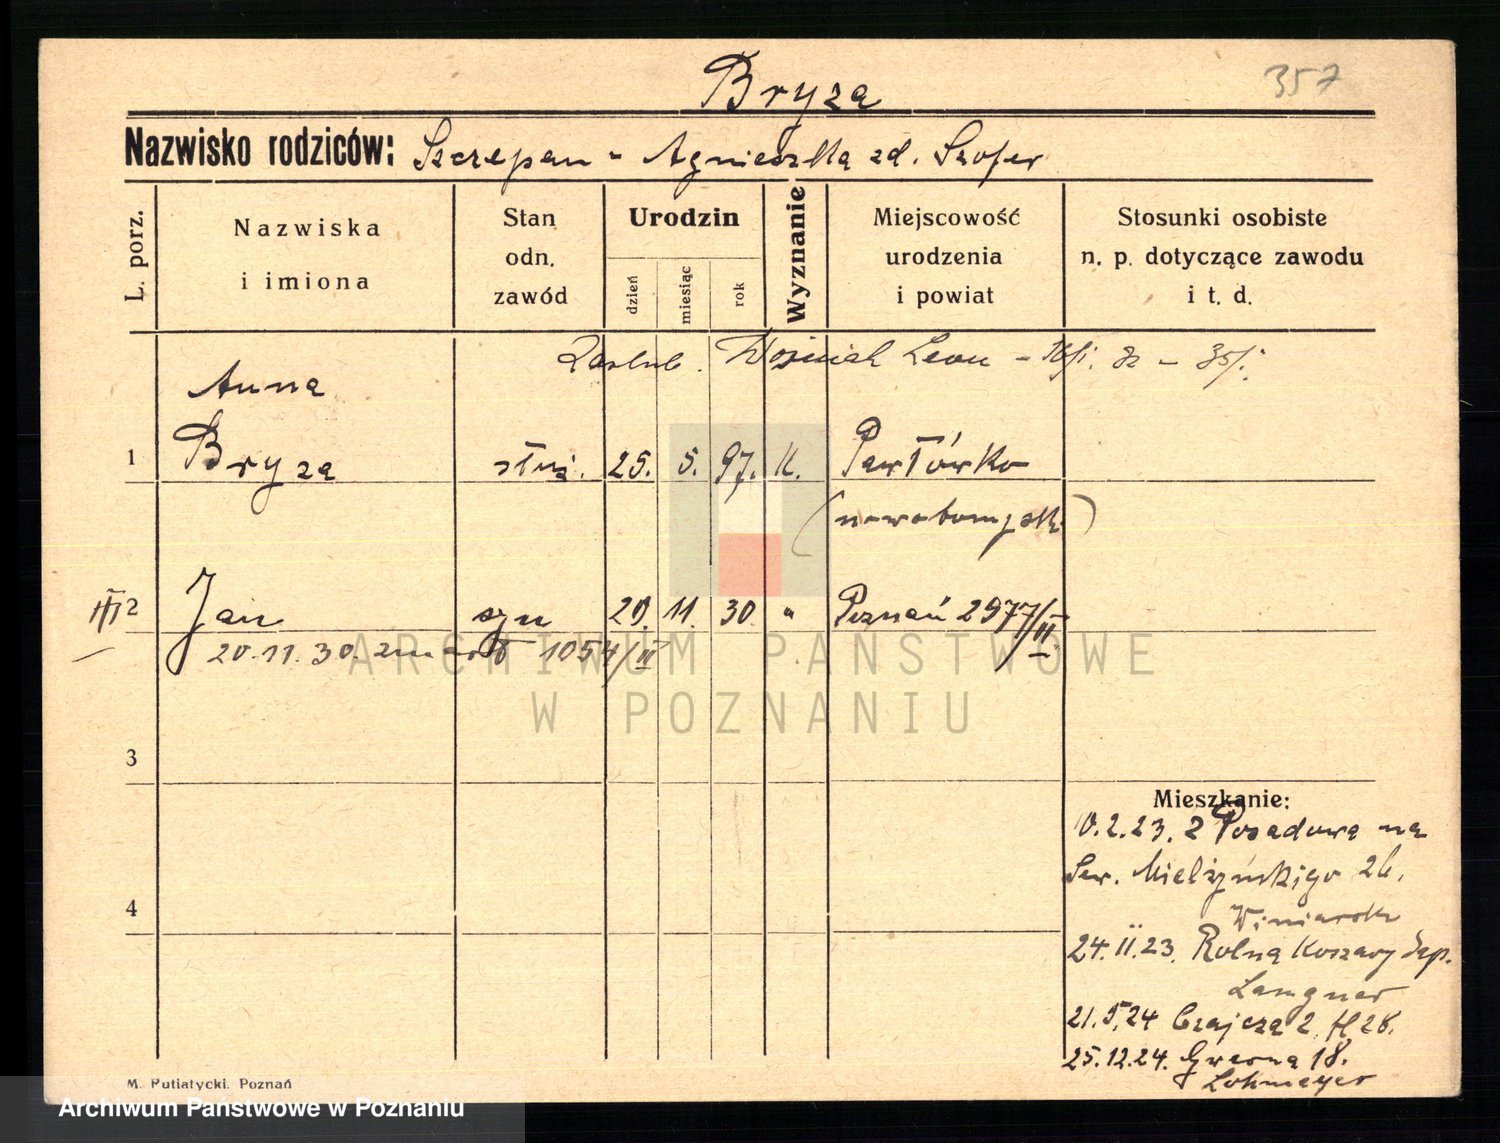 Bryza
357
Nazwisko rodziców: Szczepan - Agnieszka zd. Szofer
L. porz.
Nazwiska
i imiona
Stan
odn.
zawód
Urodzin
dzień
miesiąc
rok
Wyznanie
Miejscowość
urodzenia
i powiat
Stosunki osobiste
n. p. dotyczące zawodu
i t. d.
Wojciech Leon
Anna
1 Bryza służ. 25. 5. 97. K. Pawłówko
(nowotomysk)
III 2 Jan syn 20. 11. 30 " Poznań 2977/II
20.11.30. zmarł 1054/III
3
4
Mieszkanie:
10.2.23. z Posadowa na
Sew. Mielżyńskiego 26.
Winiarek
24.II.23. Rolna Koszary Sap.
Langner
21.5.24 Czajcza 2
25.12.24. Gwarna 18.
Lohmeyer
M. Putiatycki. Poznań
ARCHIWUM PAŃSTWOWE
W POZNANIU
Archiwum Państwowe w Poznaniu